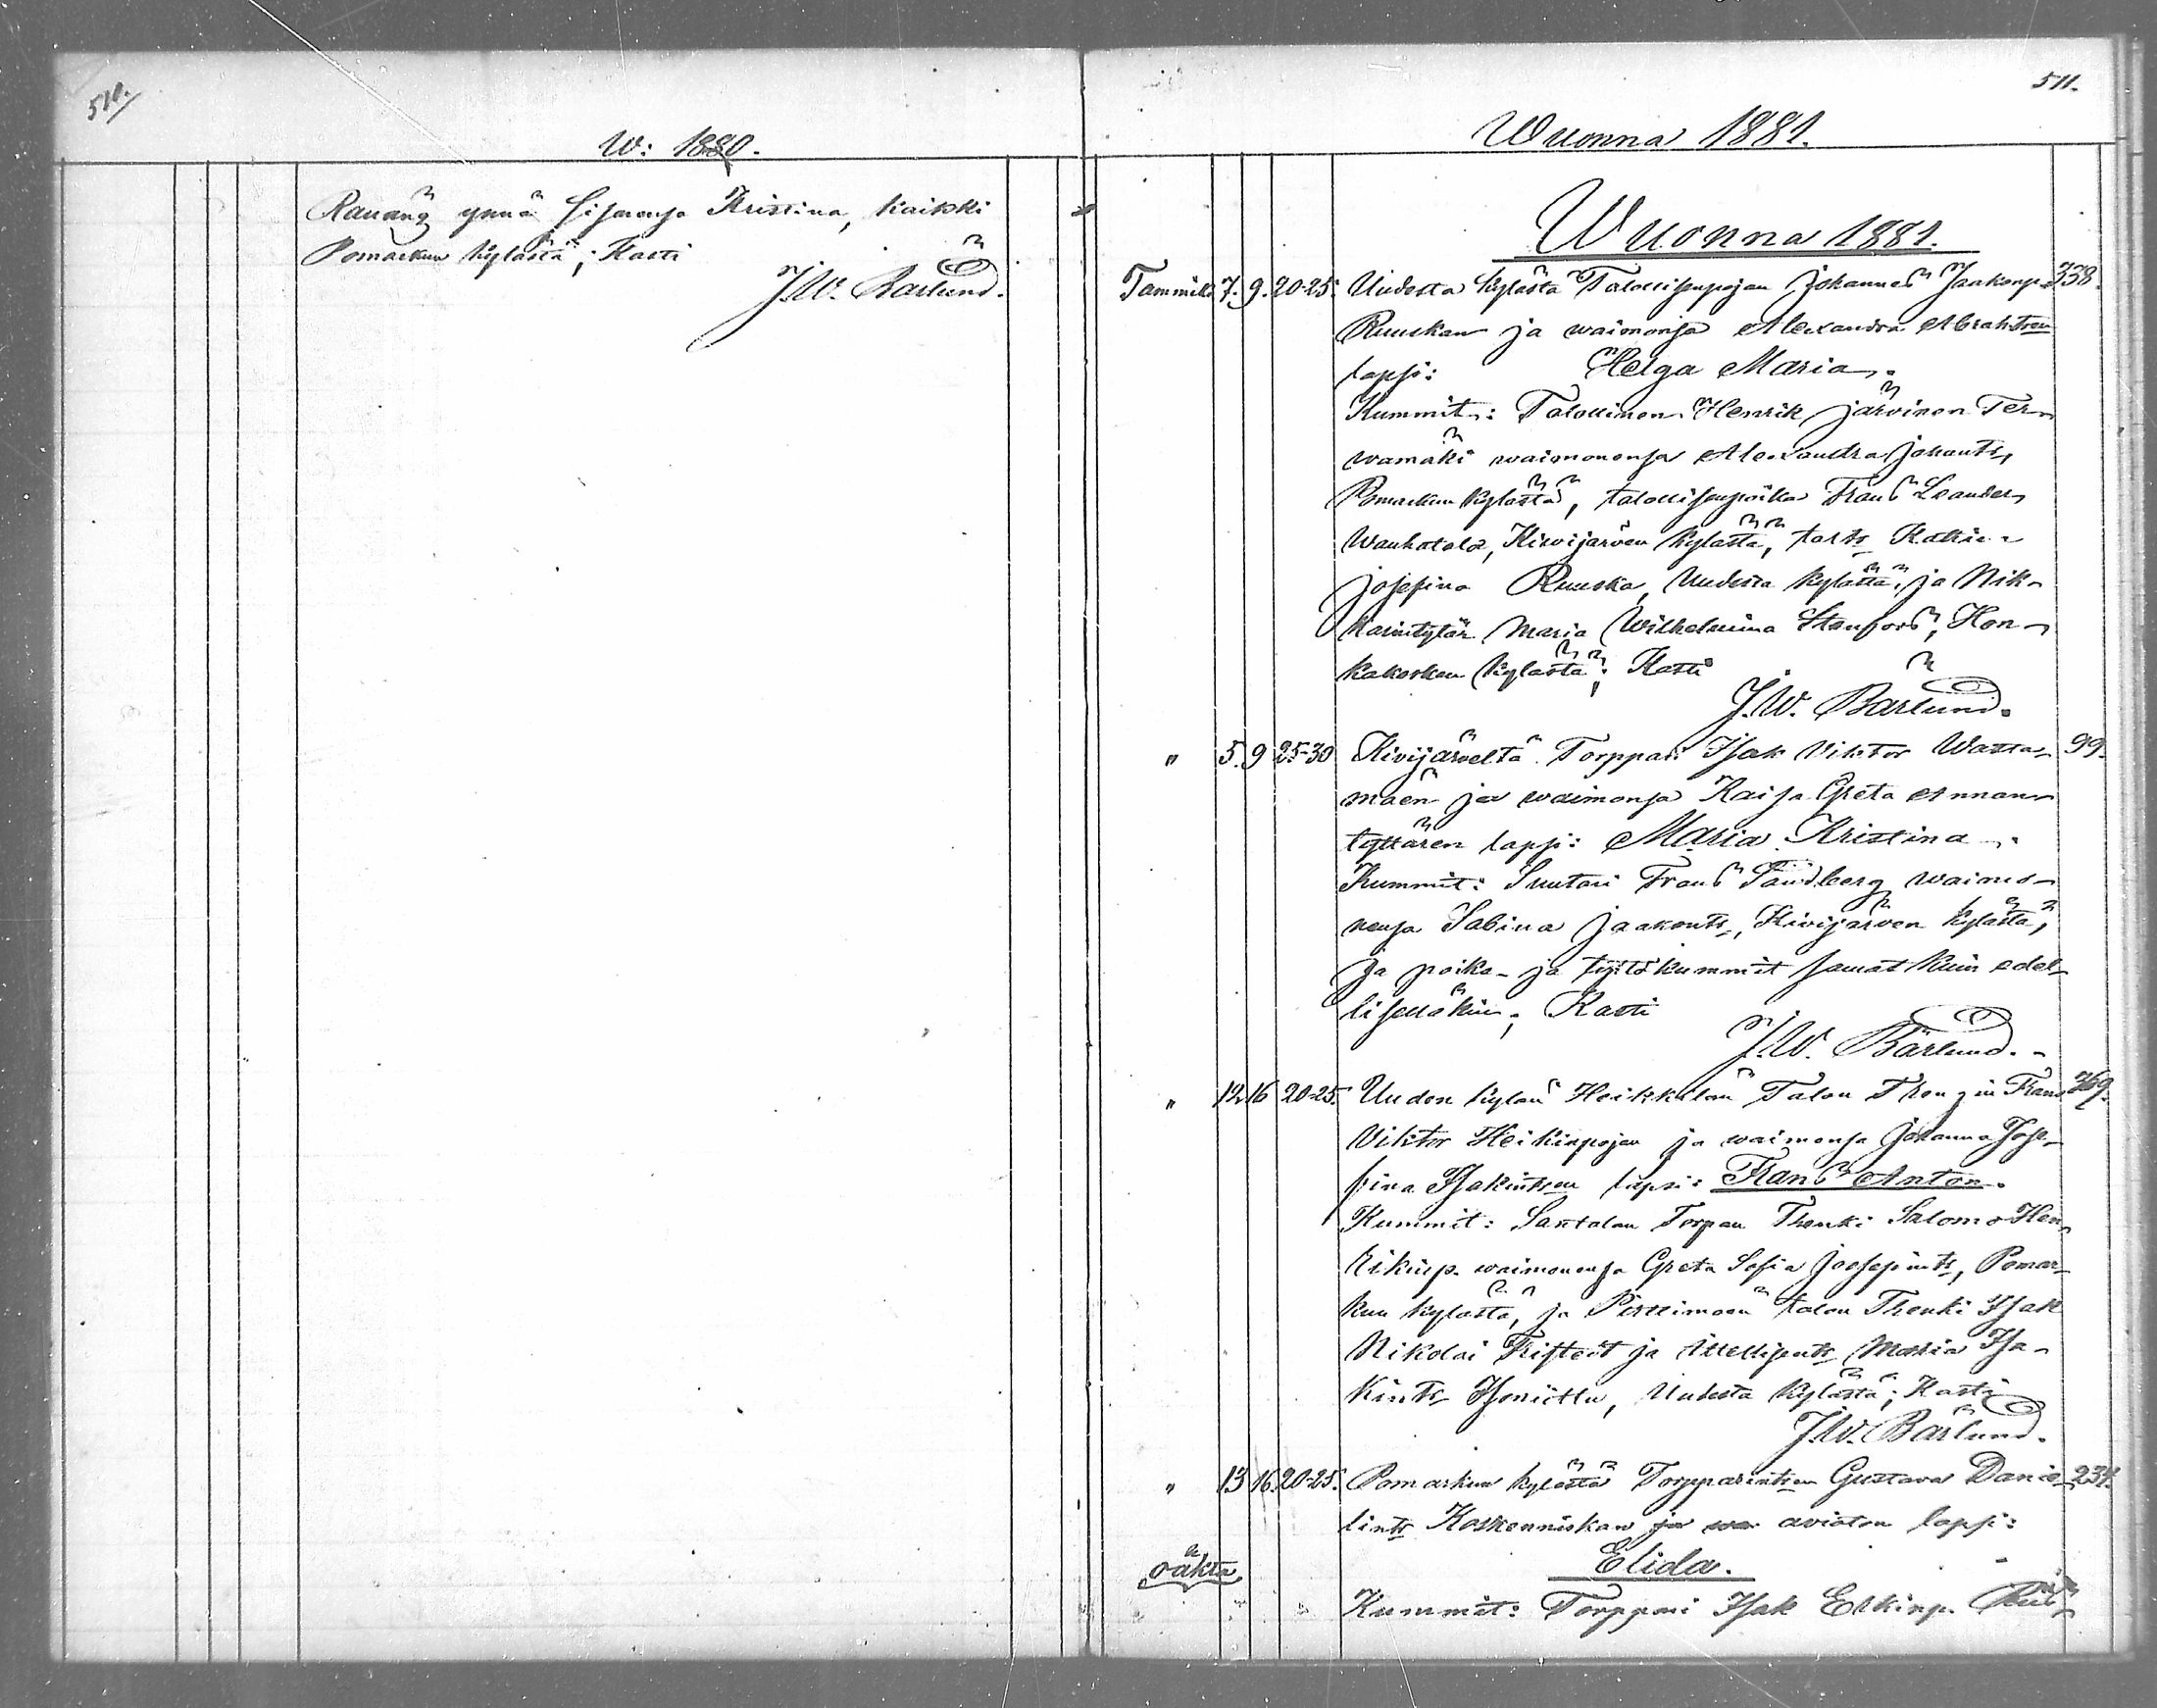 510.
W: 1880.
ynnä sisaronsa Kristina, kaikki
Pomarkun kylästä; Kasti
J.W. Bärlund.
511.
Wuonna 1881.
Wuonna 1881.
Tammik. 7. 9. 20-25. Uudesta kylästä Talollisenpojan Johannes Jaakonp. 338.
Ruuskan ja waimonsa Alexandra Abrahtren
lapsi: Helga Maria.
Kummit: Talollinen Henrik Järvinen Ter-
wamäki waimonensa Alexandra Johants,
Pomarkun kylästä, talollisenpoika Frans Leander
Wanhatalo, Kiwijärven kylästä, Katri
Josefina Ruuska, Uudesta kylästä, ja Nik-
karintytär Maria Wilhelmina Stenfors, Hon-
kakosken kylästä; Kasti
J.W. Bärlund.
" 5. 9 25-30 Kivijärveltä Torppari Isak Viktor Wassa- 99.
mäen ja waimonsa Kaisa Greta Annan-
tyttären lapsi: Maria Kristina.
Kummit: Suutari Frans Sandberg waimo-
nensa Sabina Jaakonts, Kivijärven kylästä,
ja poika- ja tyttökummit samat kuin edel-
liselläkin; Kasti
J.W. Bärlund.
" 12 16 20-25. Uuden kylän Heikkilän Talon Frans 369.
Viktor Heikinpojan ja waimonsa Johanna Jose-
fina Isakintren lapsi: Frans Anton.
Kummit: Santalan Torpan Thenki Salomo Hen-
rikinp. waimonensa Greta Sofia Joosepints, Pomar-
kun kylästä, ja talon Thenki Isak
Nikolai ja Maria Isa-
kints Isoniittu, Uudesta kylästä; Kasti
J.W. Bärlund.
" 13 16. 20-25. Pomarkun kylästä Torpparintren Gustava Danie- 234.
lints Koskenniskan ja wa aviaton lapsi:
oäkta Elida.
Kummit: Torppari Isak Erkinp.